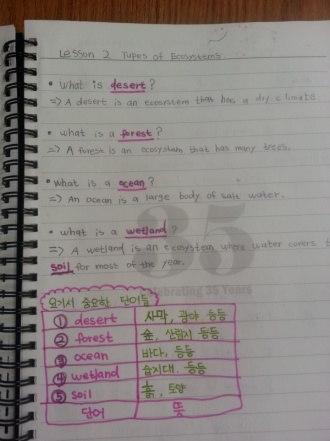 Lesson 2 Types of Ecosystems
• What is desert?
=> A desert is an ecosystem that has a dry climate
• What is a forest?
=> A forest is an ecosystem that has many trees.
• What is a ocean?
=> An ocean is a large body of salt water.
• What is a wetland?
=> A wetland is an ecosystem where water covers
soil for most of the year.
35
Celebrating 35 Years
여기서 중요한 단어들
① desert 사막, 광야 등등
② forest 숲, 산림지 등등
③ ocean 바다, 등등
④ wetland 습지대, 등등
⑤ soil 흙, 토양
단어 뜻